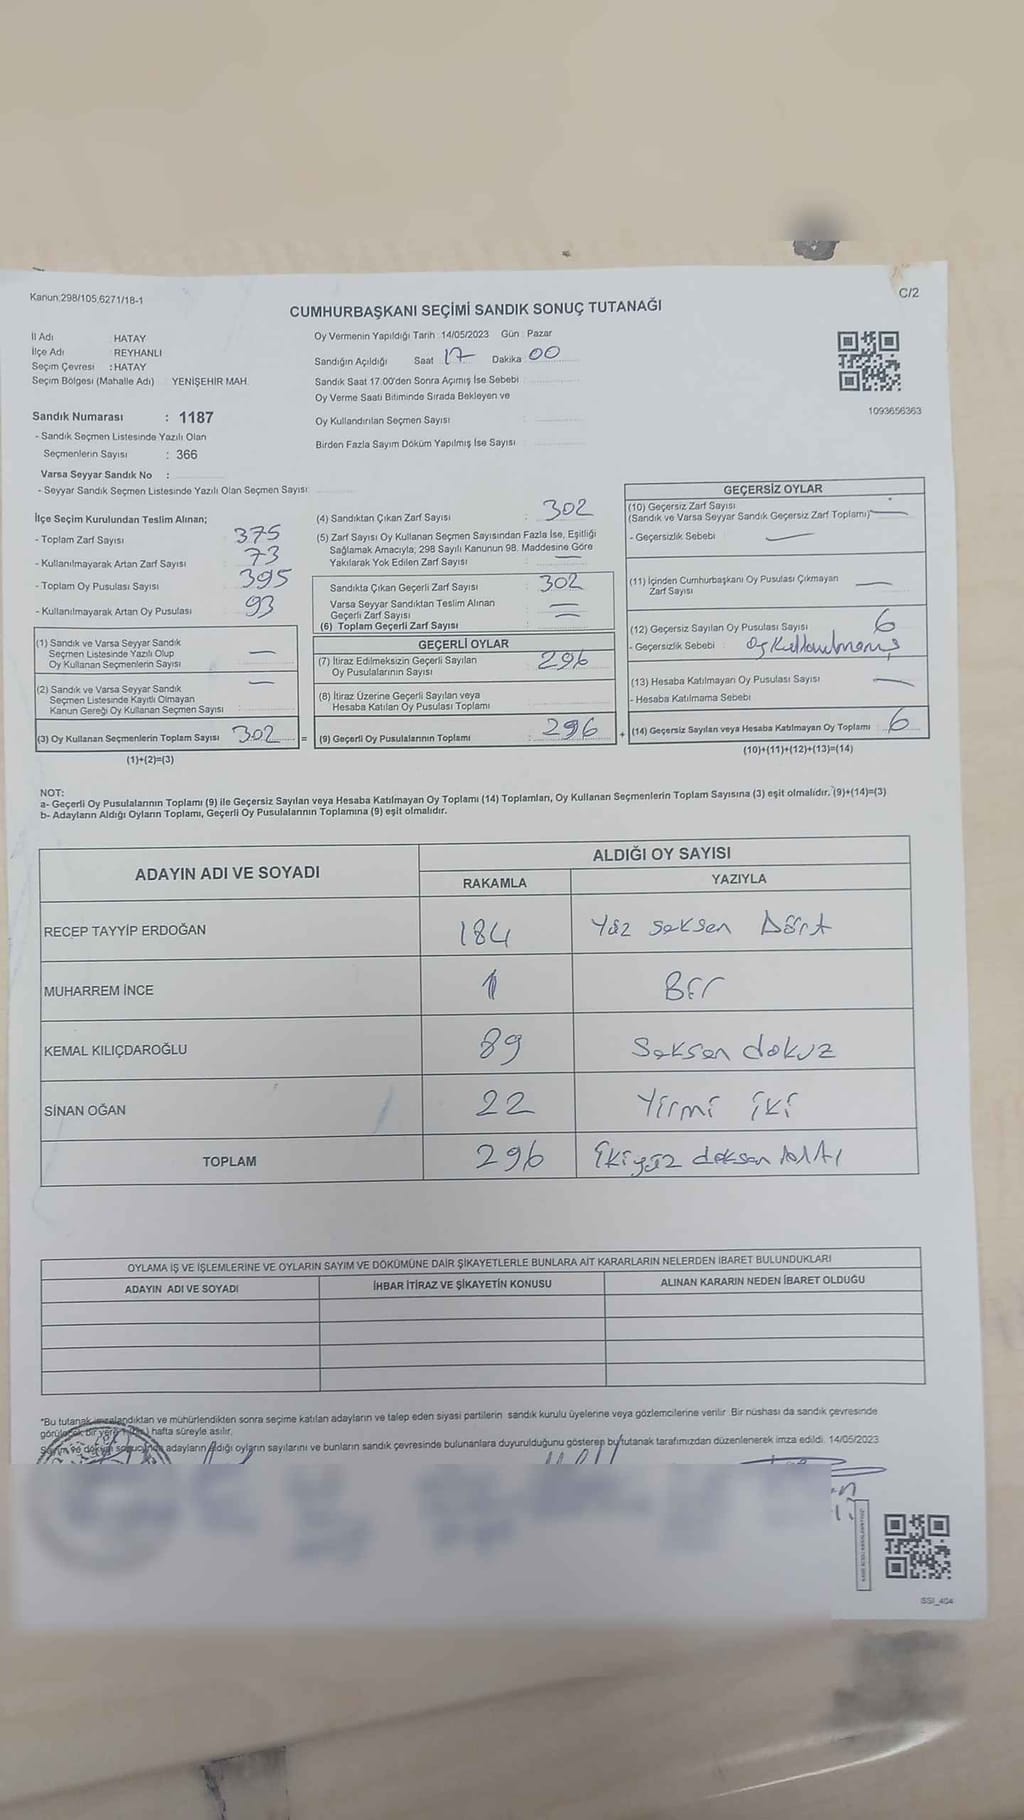 Kanun:298/105,6271/18-1
C/2
CUMHURBAŞKANI SEÇİMİ SANDIK SONUÇ TUTANAĞI
İl Adı HATAY
İlçe Adı REYHANLI
Seçim Çevresi :HATAY
Seçim Bölgesi (Mahalle Adı) YENİŞEHİR MAH.
Oy Vermenin Yapıldığı Tarih 14/05/2023 Gün : Pazar
Sandığın Açıldığı Saat 17 Dakika 00
Sandık Saat 17.00'den Sonra Açımış İse Sebebi
Oy Verme Saati Bitiminde Sırada Bekleyen ve
Oy Kullandırılan Seçmen Sayısı
Birden Fazla Sayım Döküm Yapılmış İse Sayısı
1093656363
Sandık Numarası : 1187
- Sandık Seçmen Listesinde Yazılı Olan
Seçmenlerin Sayısı : 366
Varsa Seyyar Sandık No :
- Seyyar Sandık Seçmen Listesinde Yazılı Olan Seçmen Sayısı:
İlçe Seçim Kurulundan Teslim Alınan;
- Toplam Zarf Sayısı 375
- Kullanılmayarak Artan Zarf Sayısı 73
- Toplam Oy Pusulası Sayısı 395
- Kullanılmayarak Artan Oy Pusulası 93
(1) Sandık ve Varsa Seyyar Sandık
Seçmen Listesinde Yazılı Olup
Oy Kullanan Seçmenlerin Sayısı —
(2) Sandık ve Varsa Seyyar Sandık
Seçmen Listesinde Kayıtlı Olmayan
Kanun Gereği Oy Kullanan Seçmen Sayısı —
(3) Oy Kullanan Seçmenlerin Toplam Sayısı 302
(1)+(2)=(3)
(4) Sandıktan Çıkan Zarf Sayısı : 302
(5) Zarf Sayısı Oy Kullanan Seçmen Sayısından Fazla İse, Eşitliği
Sağlamak Amacıyla; 298 Sayılı Kanunun 98. Maddesine Göre
Yakılarak Yok Edilen Zarf Sayısı : —
Sandıkta Çıkan Geçerli Zarf Sayısı : 302
Varsa Seyyar Sandıktan Teslim Alınan
Geçerli Zarf Sayısı : —
(6) Toplam Geçerli Zarf Sayısı : —
GEÇERLİ OYLAR
(7) İtiraz Edilmeksizin Geçerli Sayılan
Oy Pusulalarının Sayısı : 296
(8) İtiraz Üzerine Geçerli Sayılan veya
Hesaba Katılan Oy Pusulası Toplamı
= (9) Geçerli Oy Pusulalarının Toplamı : 296
GEÇERSİZ OYLAR
(10) Geçersiz Zarf Sayısı
(Sandık ve Varsa Seyyar Sandık Geçersiz Zarf Toplamı) —
- Geçersizlik Sebebi : —
(11) İçinden Cumhurbaşkanı Oy Pusulası Çıkmayan
Zarf Sayısı —
(12) Geçersiz Sayılan Oy Pusulası Sayısı 6
- Geçersizlik Sebebi : oy kullanılmamış
(13) Hesaba Katılmayan Oy Pusulası Sayısı —
- Hesaba Katılmama Sebebi
+ (14) Geçersiz Sayılan veya Hesaba Katılmayan Oy Toplamı 6
(10)+(11)+(12)+(13)=(14)
NOT:
a- Geçerli Oy Pusulalarının Toplamı (9) ile Geçersiz Sayılan veya Hesaba Katılmayan Oy Toplamı (14) Toplamları, Oy Kullanan Seçmenlerin Toplam Sayısına (3) eşit olmalıdır. (9)+(14)=(3)
b- Adayların Aldığı Oyların Toplamı, Geçerli Oy Pusulalarının Toplamına (9) eşit olmalıdır.
ADAYIN ADI VE SOYADI
ALDIĞI OY SAYISI
RAKAMLA YAZIYLA
RECEP TAYYİP ERDOĞAN 184 Yüz seksen Dört
MUHARREM İNCE 1 Bir
KEMAL KILIÇDAROĞLU 89 Seksen dokuz
SİNAN OĞAN 22 Yirmi iki
TOPLAM 296 İkiyüz doksan Altı
OYLAMA İŞ VE İŞLEMLERİNE VE OYLARIN SAYIM VE DÖKÜMÜNE DAİR ŞİKAYETLERLE BUNLARA AİT KARARLARIN NELERDEN İBARET BULUNDUKLARI
ADAYIN ADI VE SOYADI İHBAR İTİRAZ VE ŞİKAYETİN KONUSU ALINAN KARARIN NEDEN İBARET OLDUĞU
*Bu tutanak imzalandıktan ve mühürlendikten sonra seçime katılan adayların ve talep eden siyasi partilerin sandık kurulu üyelerine veya gözlemcilerine verilir. Bir nüshası da sandık çevresinde
görülecek bir yere hafta süreyle asılır.
Sayım ve döküm sonucunda adayların aldığı oyların sayılarını ve bunların sandık çevresinde bulunanlara duyurulduğunu gösteren bu tutanak tarafımızdan düzenlenerek imza edildi. 14/05/2023
SSI_404